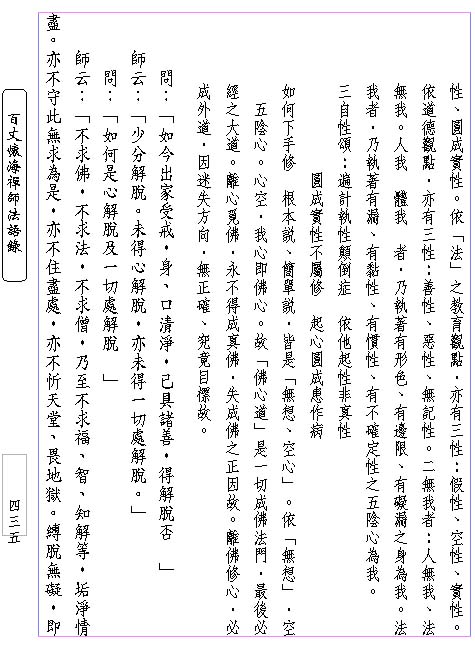 性、圓成實性。依「法」之教育觀點，亦有三性：假性、空性、實性。
依道德觀點，亦有三性：善性、惡性、無記性。二無我者：人無我、法
無我。人我　體我　者，乃執著有形色、有邊限、有礙漏之身為我。法
我者，乃執著有漏、有黏性、有慣性、有不確定性之五陰心為我。
三自性頌：遍計執性顛倒症　依他起性非真性
圓成實性不屬修　起心圓成患作病
如何下手修　根本說、簡單說，皆是「無想、空心」。依「無想」，空
五陰心。心空，我心即佛心。故「佛心道」是一切成佛法門，最後必
經之大道。離心覓佛，永不得成真佛，失成佛之正因故。離佛修心，必
成外道，因迷失方向，無正確、究竟目標故。
問：「如今出家受戒，身、口清淨，已具諸善，得解脫否　」
師云：「少分解脫。未得心解脫，亦未得一切處解脫。」
問：「如何是心解脫及一切處解脫　」
師云：「不求佛，不求法，不求僧，乃至不求福、智、知解等，垢淨情
盡。亦不守此無求為是，亦不住盡處，亦不忻天堂、畏地獄。縛脫無礙，即
百丈懷海禪師法語錄
四三五